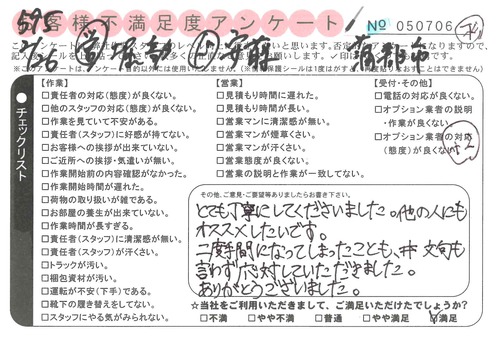 お客様不満足度アンケート
№ 050706
595
【作業】
□責任者の対応(態度)が良くない。
□他のスタッフの対応(態度)が良くない。
□作業を見ていて不安がある。
□責任者(スタッフ)に好感が持てない。
□お客様への挨拶が出来ていない。
□ご近所への挨拶・気遣いが無い。
□作業開始前の内容確認がなかった。
□作業開始時間が遅れた。
□荷物の取り扱いが雑である。
□お部屋の養生が出来ていない。
□作業時間が長すぎる。
□責任者(スタッフ)に清潔感が無い。
□責任者(スタッフ)が汗くさい。
□トラックが汚い。
□梱包資材が汚い。
□運転が不安(下手)である。
□靴下の履き替えをしてない。
□スタッフにやる気がみられない。
【営業】
□見積もり時間に遅れた。
□見積もり時間が長い。
□営業マンに清潔感が無い。
□営業マンが煙草くさい。
□営業マンが汗くさい。
□営業態度が良くない。
□営業の説明と作業が一致してない。
【受付・その他】
□電話の対応が良くない。
□オプション業者の説明
・作業が良くない。
□オプション業者の対応
(態度)が良くない。
チェックリスト
その他、ご意見・ご要望等ありましたらお書き下さい。
とても丁寧にしてくださいました。他の人にも
オススメしたいです。
二度手間になってしまったことも、文句も
言わず対応していただきました。
ありがとうございました。
☆当社をご利用いただきまして、ご満足いただけたでしょうか?
□不満 □やや不満 □普通 □やや満足 □満足